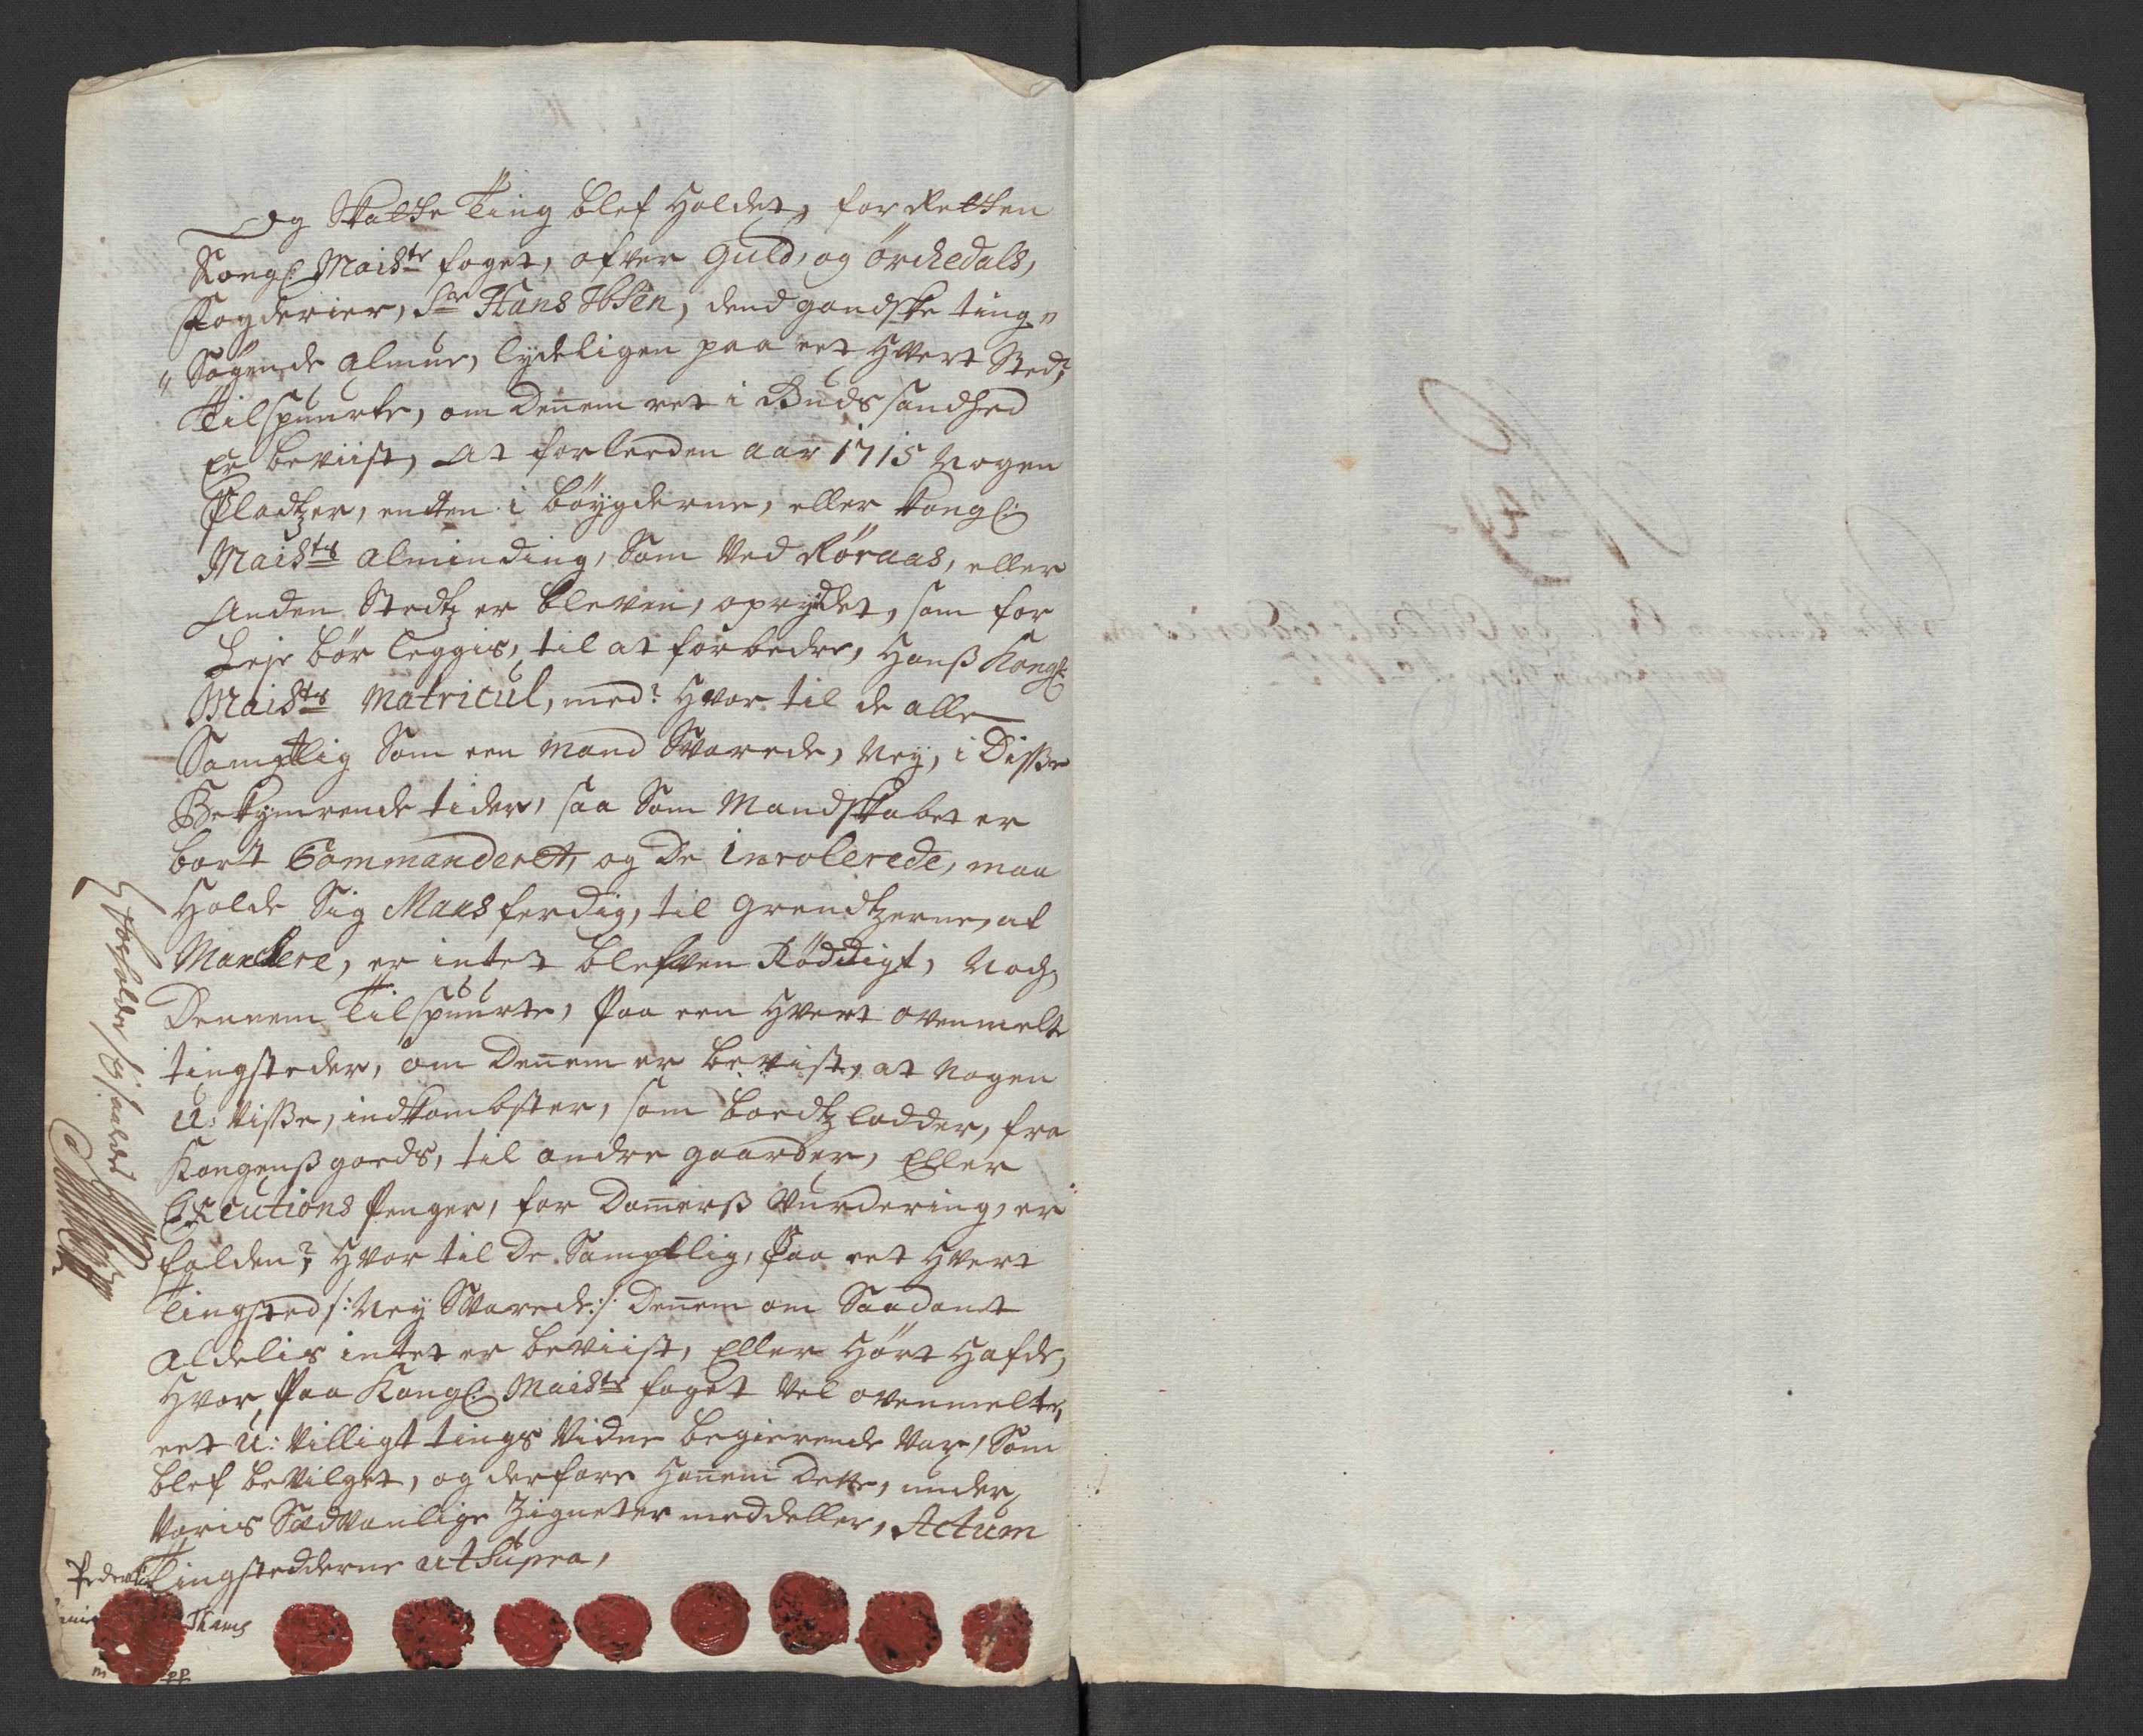 Og Skatte Ting blef Holdet, for Retten
Kongl Maisttz foget, ofver Guld, og örchedals,
Fogderier, Sr Hans Ibsen, dend gandske ting„
„Søgende almue, lydeligen paa eet Hvert Sted,
Tilspuurte, om Dennem ret i Guds sandhed
Er beviist, At forleeden aar 1715 Nogen
Pladtzer, entten i böygderne, eller Kongl:
Maists alminding, Som Ved Røraas, eller
Anden Stedtz er bleven, oprydet, som for
Leje bör leggis, til at forbedre, Hanß Kongl:
Maists Matricul, med? Hvor til de alle
Samptlig Som een Mand Svarede, Ney, i Disse
Bekymrende tider, saa Som Mandskabet er
bort Commanderet, og De inrolerede, maa
Holde Sig Mars ferdig, til Grendtzerne, at
Marchere, er intet blefven Röddigt, Noch
Dennem Tilspuurte, Paa een Hvert ovenmelte
tingsteder, om Dennem er bevist, at Nogen
U: Visse, indkombster, som boedtzladder, fra
Kongenß gods, til andre gaarder, Eller
Executions Penger, for Domerß Vurdering, er
falden? Hvor til De Samptlig, Paa eet Hvert
Tingsted /: Ney Svarede :/ Dennem om Saadant
Aldelis intet er beviist, Eller Hört Hafde,
Hvor Paa Kongl: Maists foget Vel ovenmelte,
eet U: Villigt tings Vidne begierende Var, Som
blef beVilget, og derfore Hannem Dette, under
Voris Sædvanlige Zigneter meddeller, Actum
Tingstedderne ut Supra,
Peder
Thams
m pp
No 49